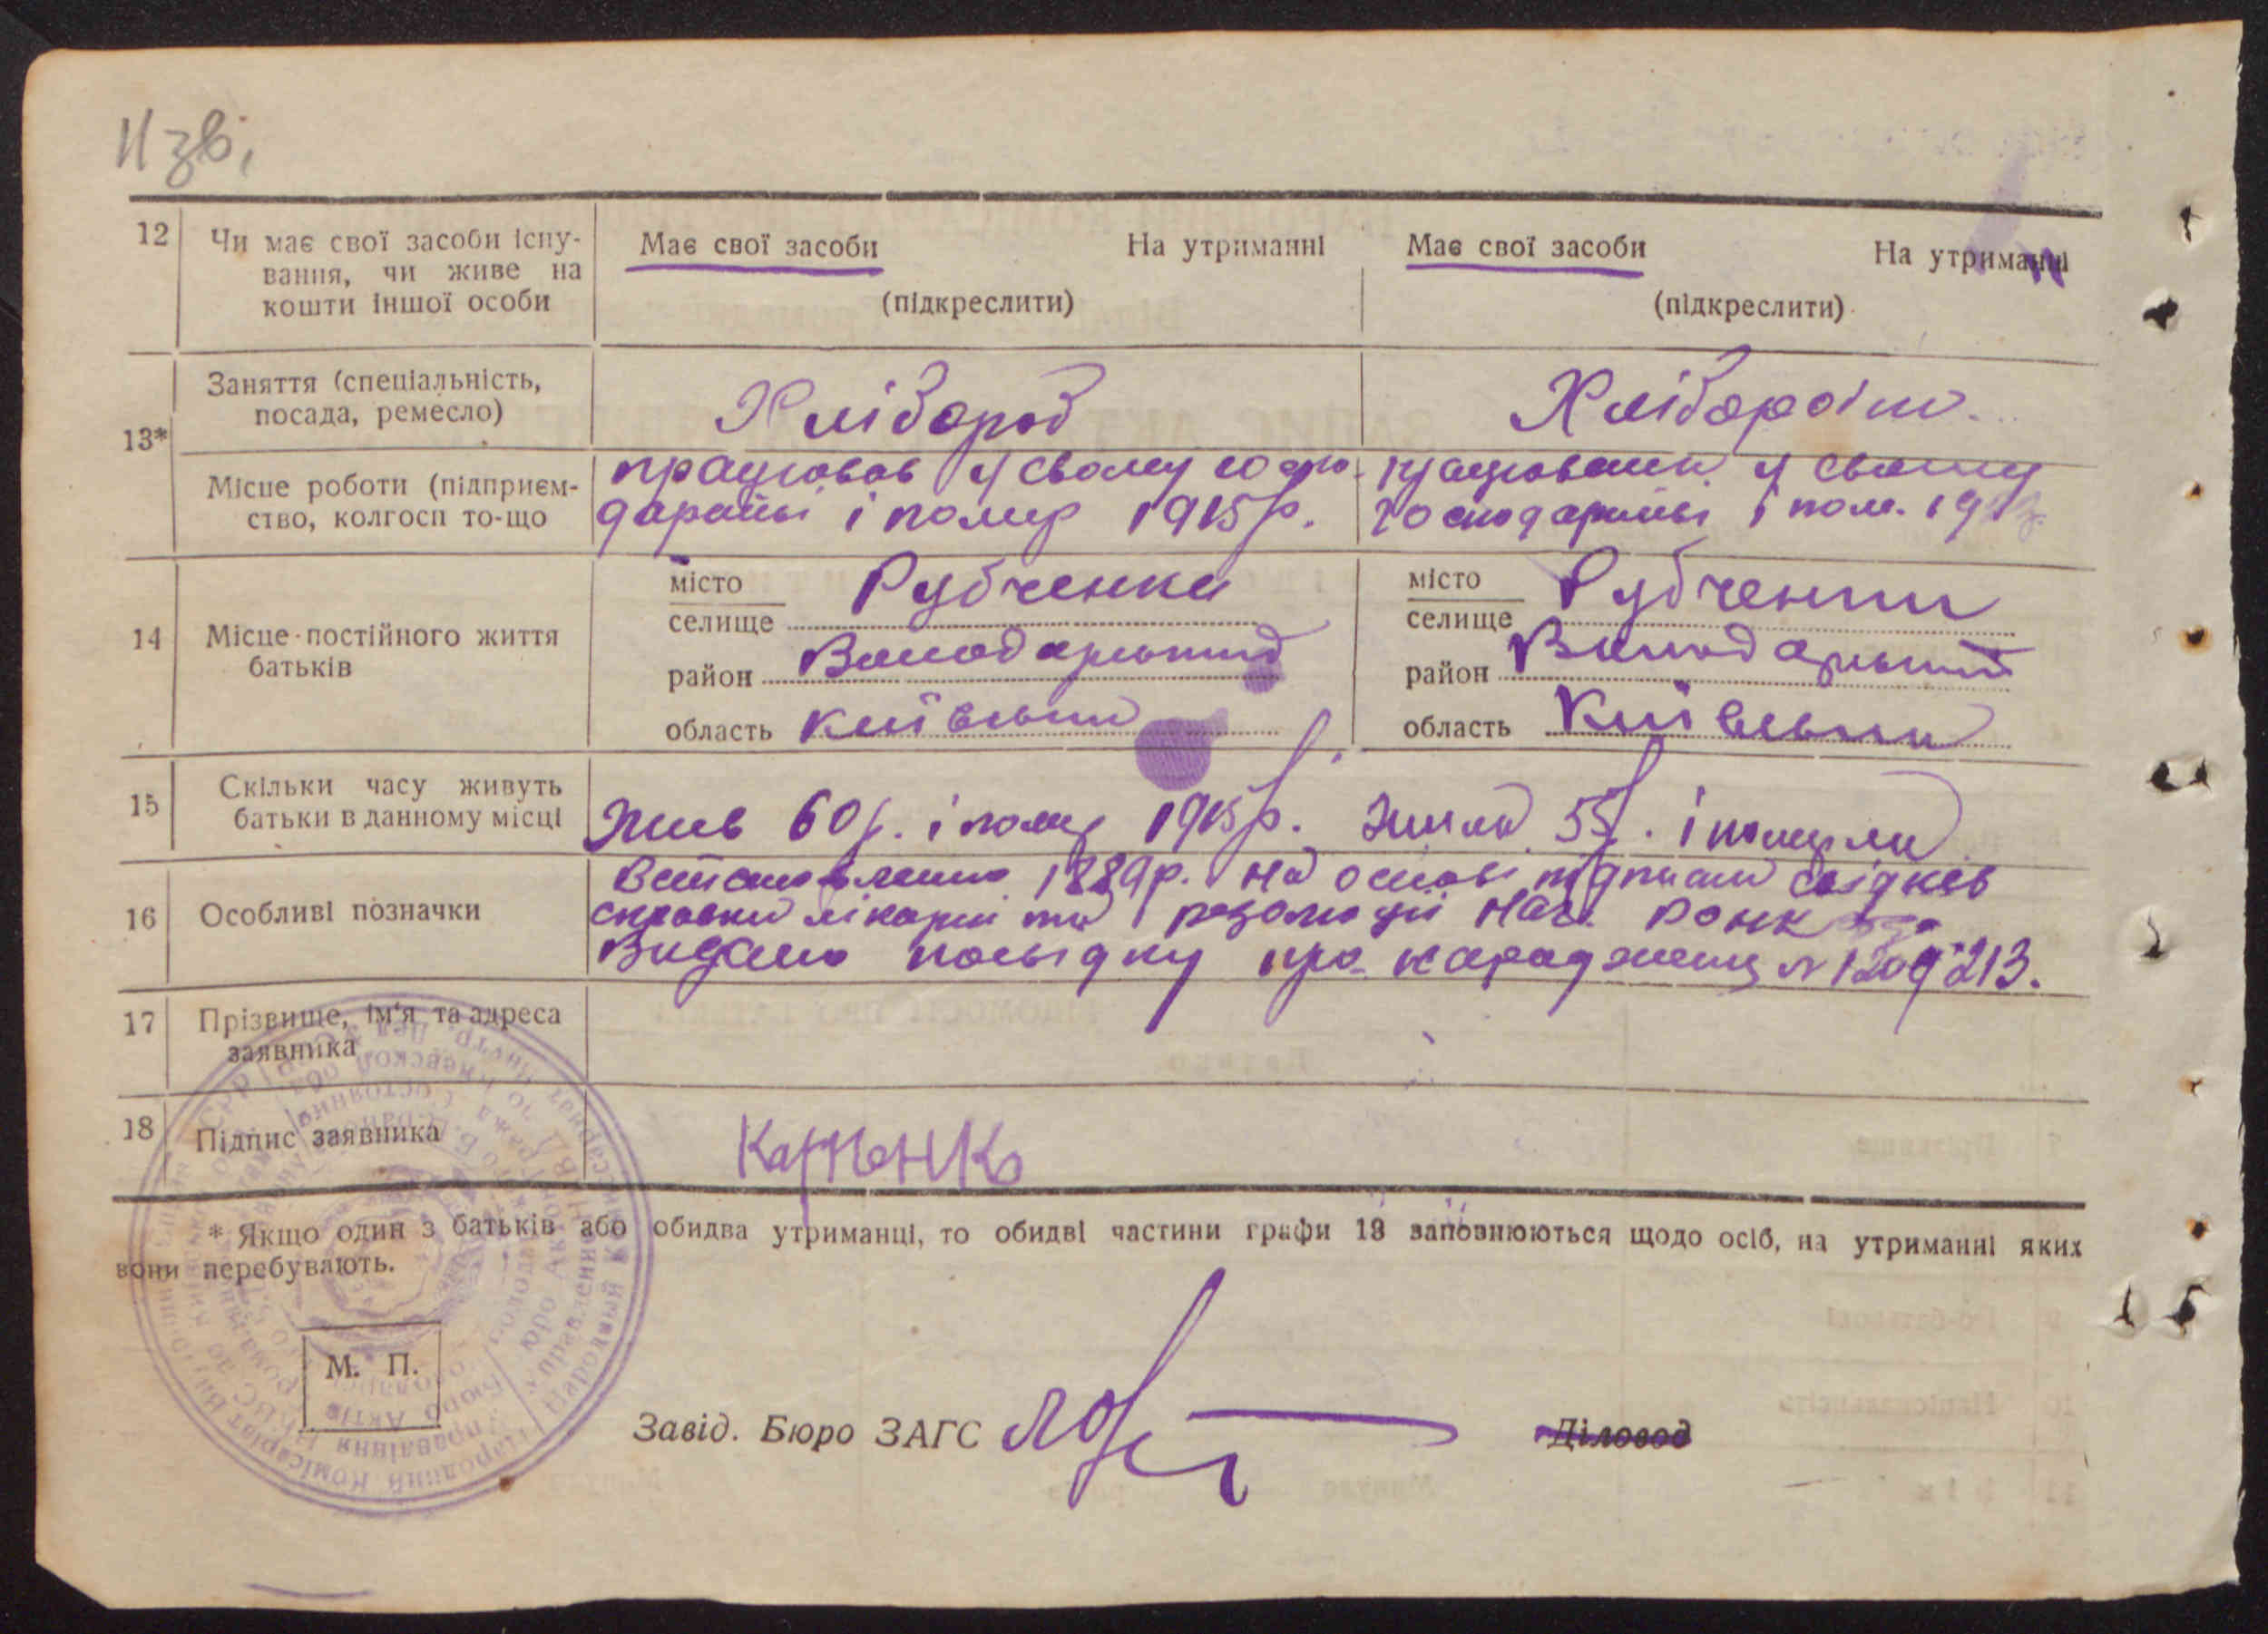 11 зв.
12 Чи має свої засоби існу-
вання, чи живе на
кошти іншої особи
Має свої засоби На утриманні
(підкреслити)
Має свої засоби На утриманні
(підкреслити)
13*
Заняття (спеціальність,
посада, ремесло)
Хлібороб
Хліборобка
Місце роботи (підприєм-
ство, колгосп то-що
працював у свому госпо-
дарстві і помер 1915 р.
працювала у свому
господарстві і пом. 19
14 Місце постійного життя
батьків
місто
селище Рубченки
район Володарський
область Київська
місто
селище Рубченки
район Володарський
область Київська
15 Скільки часу живуть
батьки в данному місці
Жив 60 р. і помер 1915 р. Жила 55 р. і померла
16 Особливі позначки
Встановлено 1889 р. на основі підписки свідків
справки лікарні та резолюції Нач. РОНК
Видано посвідку про народження № 1209213.
17 Прізвище, ім'я та адреса
заявника
18 Підпис заявника
* Якщо один з батьків або обидва утриманці, то обидві частини графи 13 заповнюються щодо осіб, на утриманні яких
вони перебувають.
М. П.
Завід. Бюро ЗАГС
Діловод